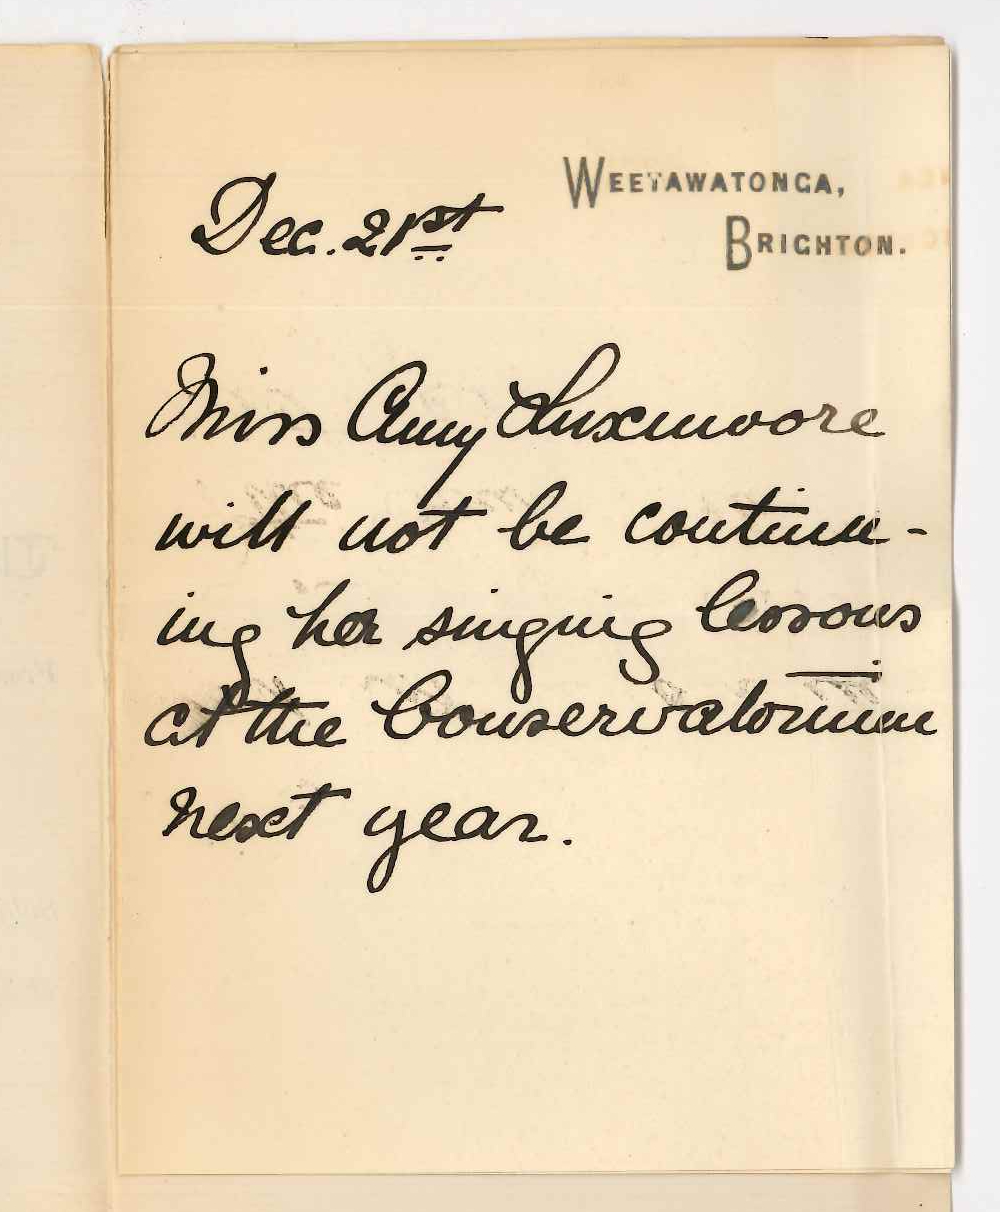 Dec. 21st
WEETAWATONGA,
BRIGHTON.
Miss Amy Luxmoore
will not be continu-
ing her singing lessons
at the Conservatorium
next year.